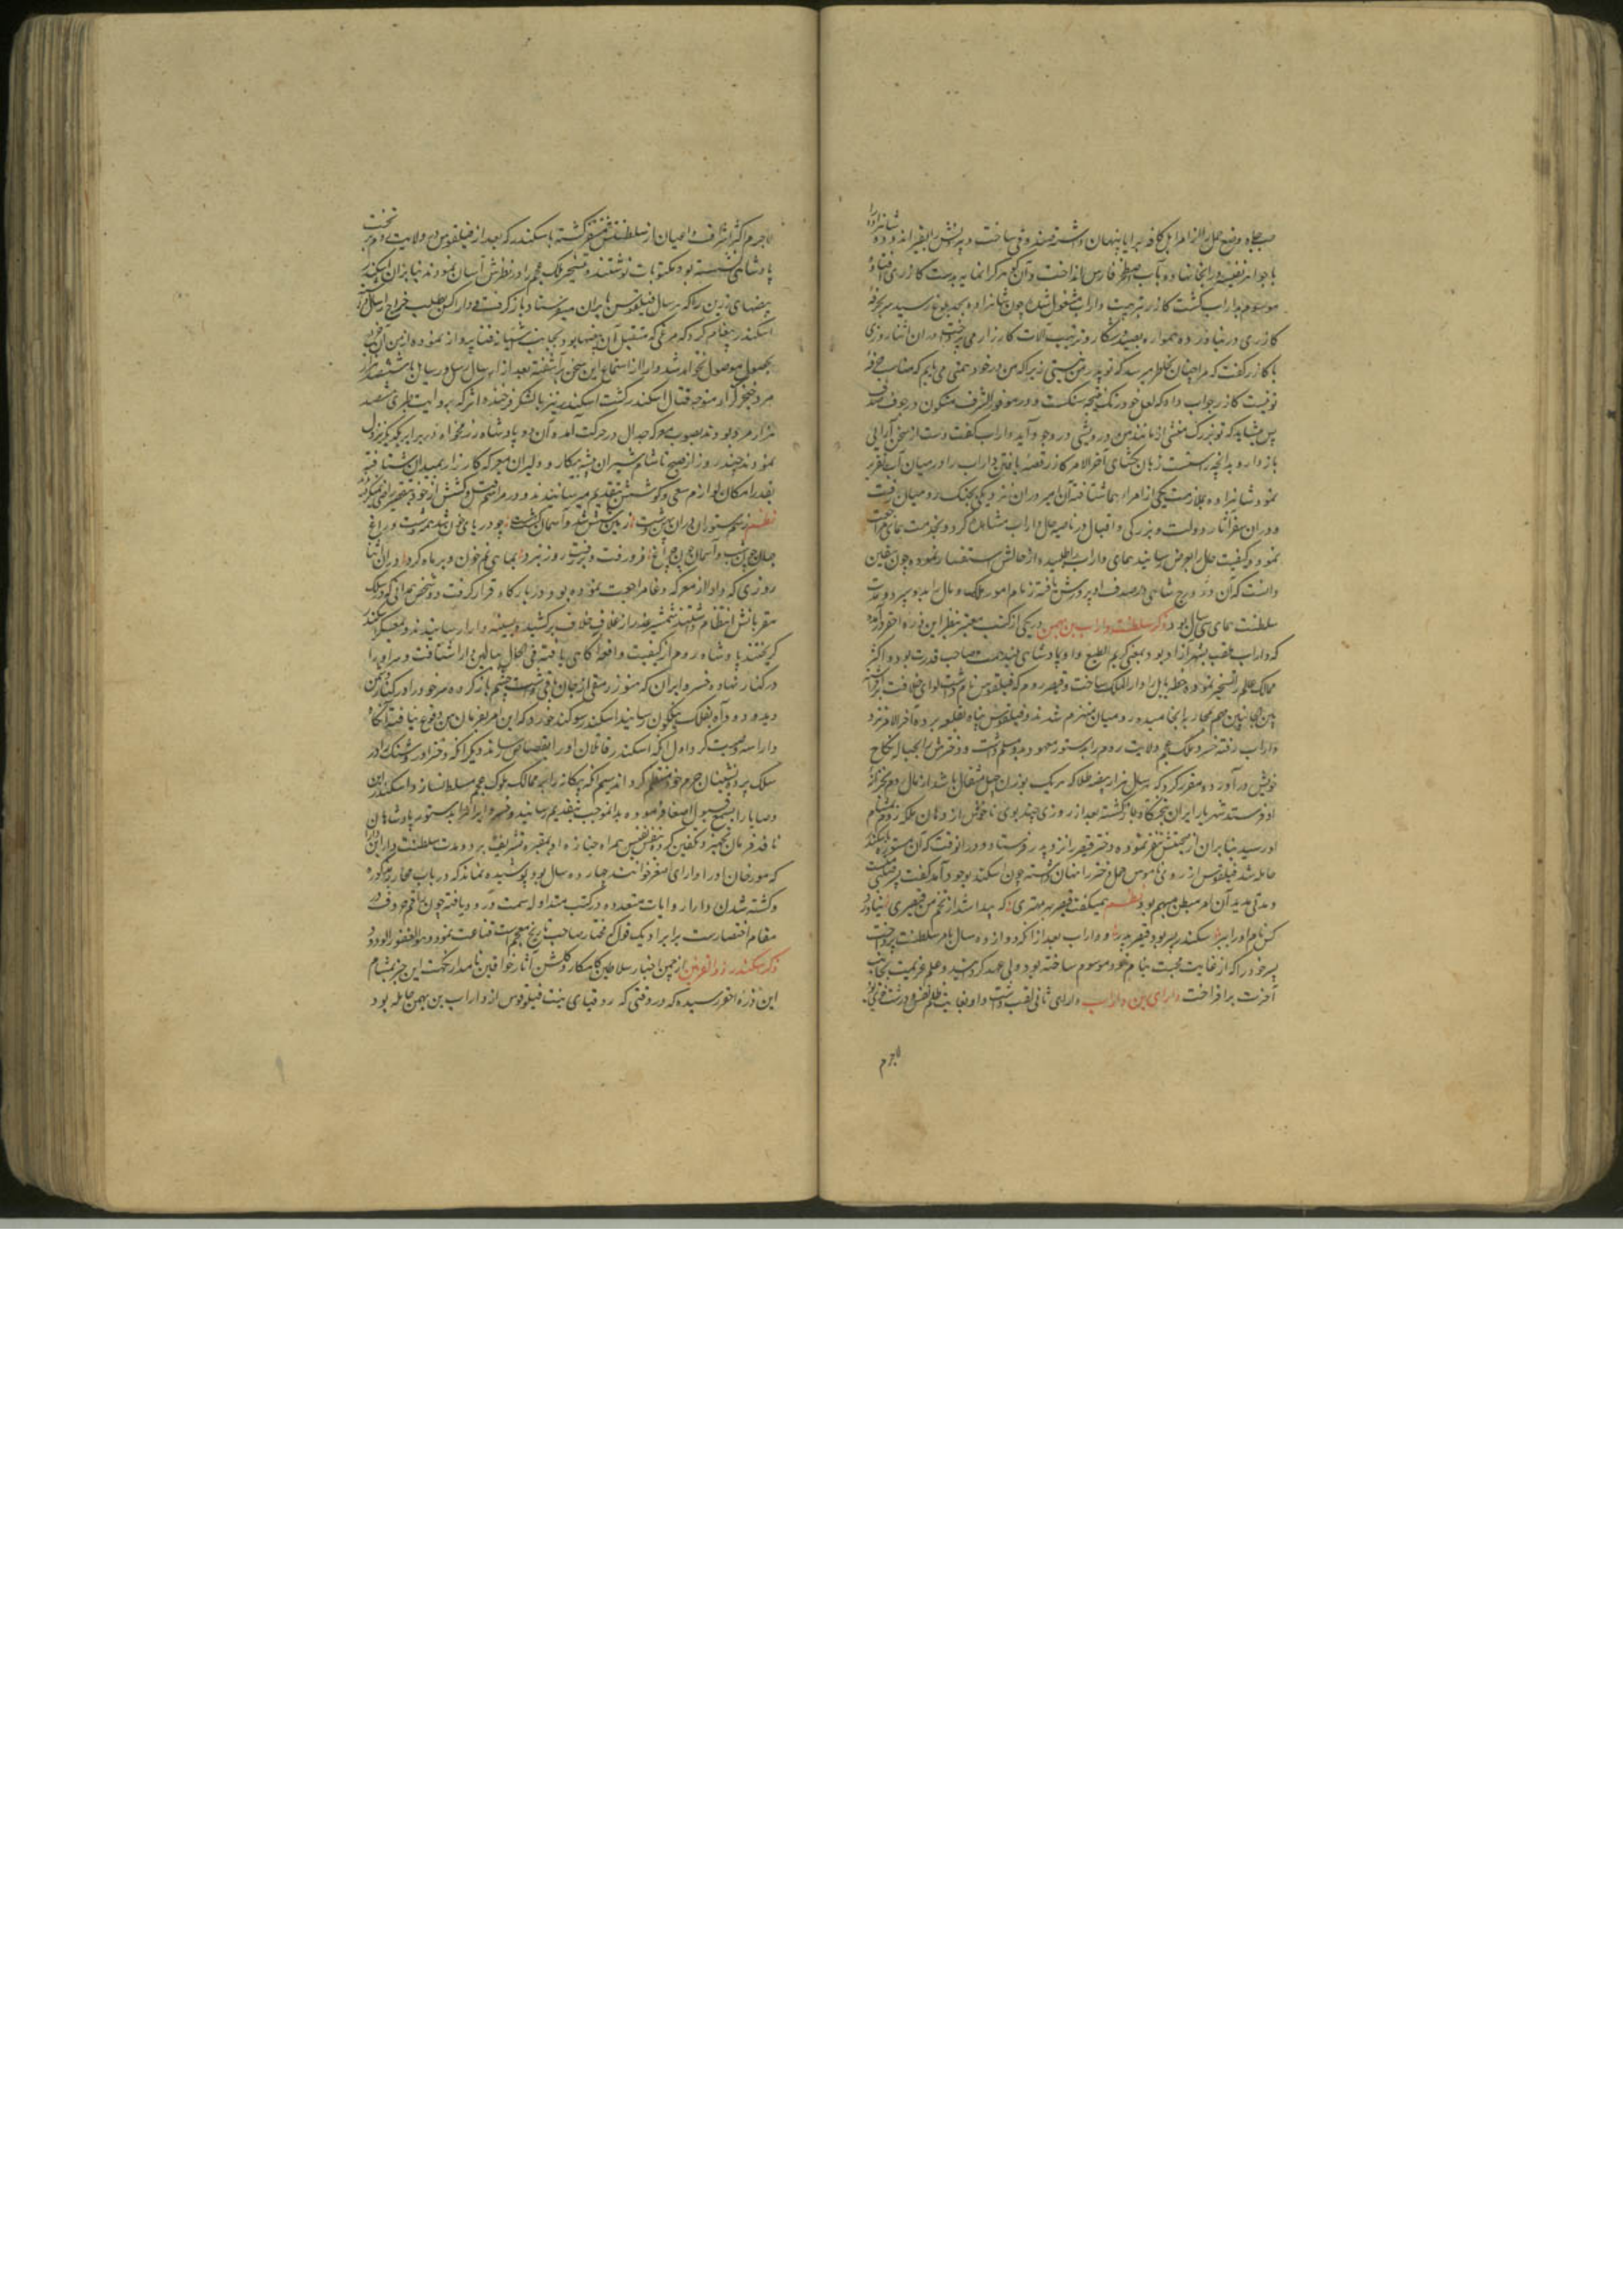 با جواهر نفیسه در آنجا نهاده و بآب اصطخر فارس انداخت و آن گوهر گرانمایه بدست گازری افتاده
موسوم بداراب گشت گازر بتربیت داراب مشغول شد چون شاهزاده بحد بلوغ رسید سر بحرفهٔ
گازری در نیاورده همواره بصید و شکار و ترتیب آلات کارزار می پرداخت در آن اثنا روزی
با گازر گفت که مرا چنان بخاطر میرسد که تو پدر من نیستی زیرا که من در خود همتی می یابم که مناسب حرفهٔ
تو نیست گازر جواب داد که لعل خوشرنگ نتیجه سنگست و در موفور الشرف متکون در جوف صدف
پس میشاید که تو بزرگ منش از مانند من درویشی در وجود آید داراب گفت دست از سخن آرایی
باز دار و بدانچه راستست زبان بگشای آخر الامر گازر قصه یافتن داراب را در میان آب تقریر
نمود شاهزاده بملازمت یکی از امراء همای شتافته آن امیر در آن نزدیکی بجنگ رومیان رفت
و در آن سفر آثار دولت و بزرگی و اقبال در ناصیه حال داراب مشاهده کرد و بخدمت همای مراجعت
نموده کیفیت حال را بعرض رسانید همای داراب را طلبیده از حالش استفسار نموده چون بیقین
دانست که آن در درج شاهی در صدف او پرورش یافته زمام امور ملک و مال را بدو سپرد و مدت
سلطنت همای سی سال بود ذکر سلطنت داراب بن بهمن در یکی از کتب معتبر بنظر این ذره احقر درآمده
که داراب ملقب بشهرآزاد بود بمعنی کریم الطبع و او پادشاهی بلند همت و صاحب قدرت بود و اکثر
ممالک عالم را تسخیر نموده خطه بابل را دار الملک ساخت و قیصر روم که فیلقوس نام داشت لوای خلافت برافراشته
بین الجانبین مهم بمحاربه انجامید رومیان منهزم شدند و فیلقوس پناه بقلعه برده آخر الامر نزد
داراب رفته خسرو ملک عجم ولایت روم را بدستور معهود بدو مسلم داشت و دخترش را بحباله نکاح
خویش درآورده مقرر کرد که هر سال هزار بیضه طلا که هر یک بوزن چهل مثقال باشد از مال روم بخزانهٔ
او فرستد شهریار ایران بتختگاه بازگشته بعد از روزی چند بوی ناخوش از دهان ملکه روم بمشام
او رسید بنابر آن از صحبتش متنفر نموده دختر قیصر را نزد پدر فرستاد و در آنوقت که آن مستوره باسکندر
حامله شد فیلقوس از روی ناموس حمل دختر را نهان داشته چون اسکندر بوجود آمد گفت پسر منست
و مدتی مدید آن امر مبطن مبهم بود نظم همیگفت قیصر بهر مهتری که پیدا شد از تخم من قیصری نیاورد
کس نام دارا ببر سکندر پسر بود قیصر پدر و داراب بعد از آنکه دوازده سال بامر سلطنت پرداخت
پسر خود را که از غایت محبت بنام خود موسوم ساخته بود ولی عهد گردانید و علم عزیمت بجانب
آخرت برافراخت دارای بن داراب دارای ثانی لقب داشت و او بغایت ظالم نفس و درشت خوی بود
لاجرم
لاجرم اکثر اشراف و اعیان از سلطنتش متنفر گشته باسکندر که بعد از فیلقوس در ولایت روم بر تخت
پادشاهی نشسته بود مکتوبات نوشتند و تسخیر ملک عجم را در نظرش آسان نمودند بنابر آن اسکندر
بیضهای زرین را که هر سال فیلقوس بایران میفرستاد بازگرفت و دارا کس بطلب خراج ارسال داشته
اسکندر پیغام کرد که مرغی که متقبل آن بیضها بود بجانب آشیانه فنا پرواز نموده
بحصول موصول نخواهد شد دارا از استماع این سخن برآشفته بعد از ارسال رسل و رسایل با ششصد هزار
مرد خنجر گزار متوجه قتال اسکندر گشت اسکندر نیز با لشکر فرخنده اثر که بروایت طبری هشتصد
هزار مرد بودند بصوب معرکه جدال در حرکت آمده آن دو پادشاه رزمخواه در برابر یکدیگر نزول
نمودند چند روز از صبح تا شام شیران بیشه پیکار و دلیران معرکه کارزار بمیدان شتافته
بقدر امکان لوازم سعی و کوشش بتقدیم میرسانیدند و در مراسم قتل و کشش از خود بتقصیر راضی نمیگشتند
نظم ز سم ستوران در آن پهن دشت زمین شش شد و آسمان گشت هشت چو دریای خون شد همه دشت و راغ
جهان چون شب و آسمان چون چراغ فرو رفت و بر رفت روز نبرد بماهی نم خون و بر ماه گرد در آن اثنا
روزی که دارا از معرکه وغا مراجعت نموده بود و در بارگاه قرار گرفت دو شخص همدانی که در سلک
مقربانش انتظام داشتند شمشیر غدر از غلاف خلاف برکشیده بسینه دارا رسانیدند و بمعسکر اسکندر
گریختند پادشاه روم از کیفیت واقعه آگاهی یافته فی الحال ببالین دارا شتافت و سر او را
در کنار نهاده خسرو ایران که هنوز رمقی از جان باقی داشت چشم باز کرده سر خود را در کنار دشمن
دید و دود آه بفلک نیلگون رسانید اسکندر سوگند خورد که این امر بفرمان من وقوع نیافته آنگاه
دارا سه وصیت کرد اول آنکه اسکندر قاتلان او را بقصاص رساند دیگر آنکه دختر او روشنک را در
سلک پرده نشینان حرم خود منتظم گرداند سیم آنکه بیگانه را بر ممالک ملوک عجم مسلط نسازد اسکندر این
وصایا را بسمع قبول اصغا فرموده بدانموجب بتقدیم رسانید و خسرو ایران را بدستور پادشاهان
نافذ فرمان تجهیز و تکفین کرده بنفس نفیس همراه جنازه او بمقبره تشریف برد و مدت سلطنت دارا بن دارا
که مورخان او را دارای اصغر خوانند چهارده سال بود پوشیده نماند که در باب محاربه مذکوره
و کشته شدن دارا روایات متعدده در کتب متداوله سمت ورود یافته چون راقم حروف در
مقام اختصارست بر ایراد یک قول که مختار صاحب تاریخ معجم است قناعت نمود و هو الغفور الودود
ذکر سکندر ذو القرنین از چمن اخبار سلاطین کامکار و گلشن آثار خواقین نامدار نکهت این خبر بمشام
این ذره احقر رسیده که در وقتی که روقیای بنت فیلقوس از داراب بن بهمن حامله بود